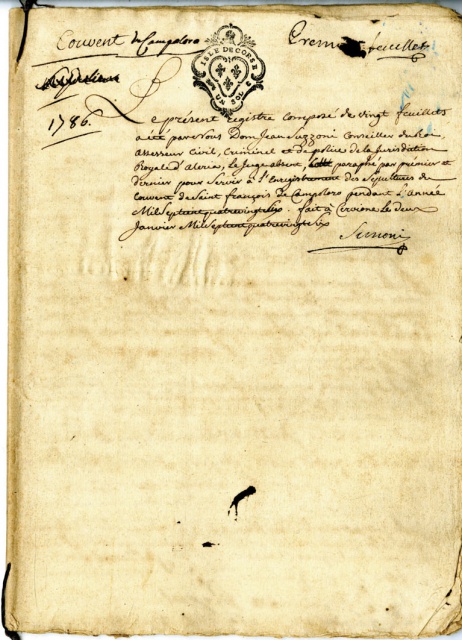 Couvent de Campoloro
Premier feuillet
ISLE DE CORSE
UN SOL
1786.
Le présent Registre composé de vingt feuillets
a été par nous Dom Jean Suzzoni Conseiller du Roi,
assesseur civil, Criminel et de police de la Jurisdiction
Royale d'aleria, le Juge absent, paraphé par premier et
dernier pour Servir à l'Enregistrement des Sépultures du
Couvent de Saint françois de Campoloro pendant L'année
Mil Septcent quatrevingt Six. fait à Cervione Le deux
Janvier Mil Septcent quatrevingt Six
Suzzoni